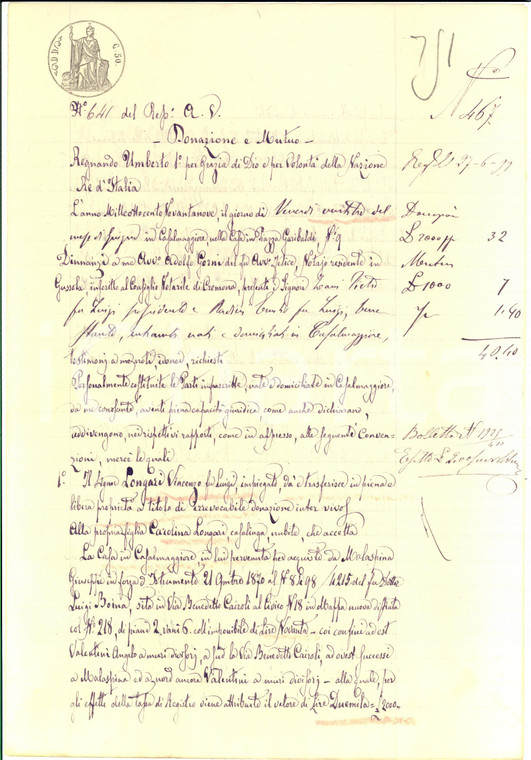 C. 50.
751
N° 467
N° 641 del Rep° A. V.
- Donazione e Mutuo -
Regnando Umberto I° per Grazia di Dio e per Volontà della Nazione
Re d'Italia
L'anno Milleottocento Novantanove, il giorno di Venerdì ventitre del
mese di Giugno in Casalmaggiore, nella Casa in Piazza Garibaldi N° 9
Dinnanzi a me Avv° Adolfo Gorni del fu Avv° Felice, Notajo residente in
Gussola, inscritto al Consiglio Notarile di Cremona, presenti i Signori
fu Luigi, e fu Luigi, bene
stante, entrambi nati e domiciliati in Casalmaggiore,
testimonj a me noti, idonei, richiesti
Personalmente costituite le Parti infrascritte, nate e domiciliate in Casalmaggiore,
da me conosciute, aventi piena capacità giuridica come anche dichiarano,
addivengono, nei rispettivi rapporti, come in appresso, alle seguenti Conven-
zioni, mercè le quali
1° Il Signor Longari Vincenzo fu Luigi, impiegato, dà e trasferisce in piena e
libera proprietà a titolo di irrevocabile donazione inter vivos
Alla propria figlia Carolina Longari casalinga, nubile, che accetta
La Casa in Casalmaggiore in lui pervenuta per acquisto da Malaspina
Giuseppe in forza d'Istrumento 21 9mbre 1870 al N° 8298/4215 del fu Dottor
Luigi Boina, sita in Via Benedetto Cairoli al Civico N° 18 in Mappa nuova distinta
col N° 218, di piani 2, vani 6. coll'imponibile di Lire Novanta - coi confini ad est
Valentini Angelo a muri divisorj, a sud la Via Benedetto Cairoli, ad ovest successi
a Malaspina ed a nord ancora Valentini a muri divisorj - alla quale, per
gli effetti della tassa di Registro viene attribuito il valore di Lire Duemila = £ 2000-
27-6-99
Donazione
£ 2000 32
Mutuo
£ 1000 7
1.40
40.40
Bolletta N°